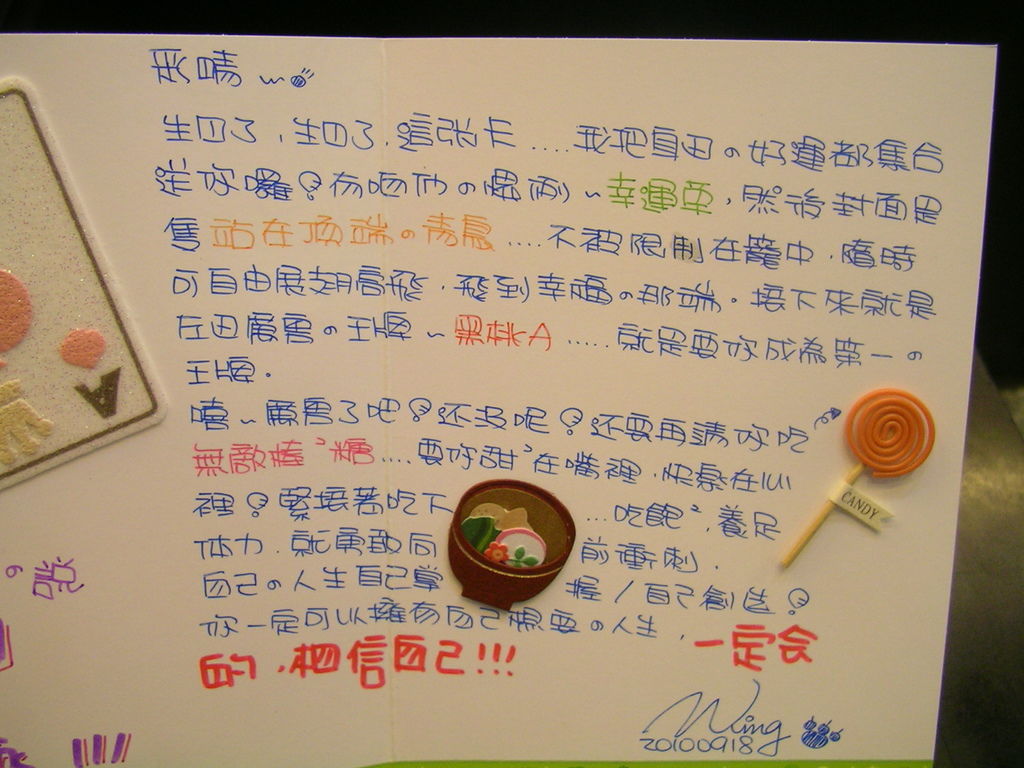 彩晴~
生日了,生日了,這張卡....我把自田の好運都集合
送你囉?有吻仂の
~幸運草,然後封面是
隻站在頂端の青鳥....不被限制在籠中,隨時
可自由展翅高飛,飛到幸福の那端。接下來就是
左边厲害の王牌~黑桃A.....就是要你成為第一の
王牌。
嘻~厲害了吧?还沒呢?还要再請你吃
無敵棒²糖....要你甜²在嘴裡,快樂在心
裡?緊接著吃下 ...吃飽²,養足
体力,就勇敢向 前衝刺.
自己の人生自己掌 握/自己創造?
你一定可以擁有自己想要の人生,一定会
的,相信自己!!!
Wing
20100918
CANDY
A
の張